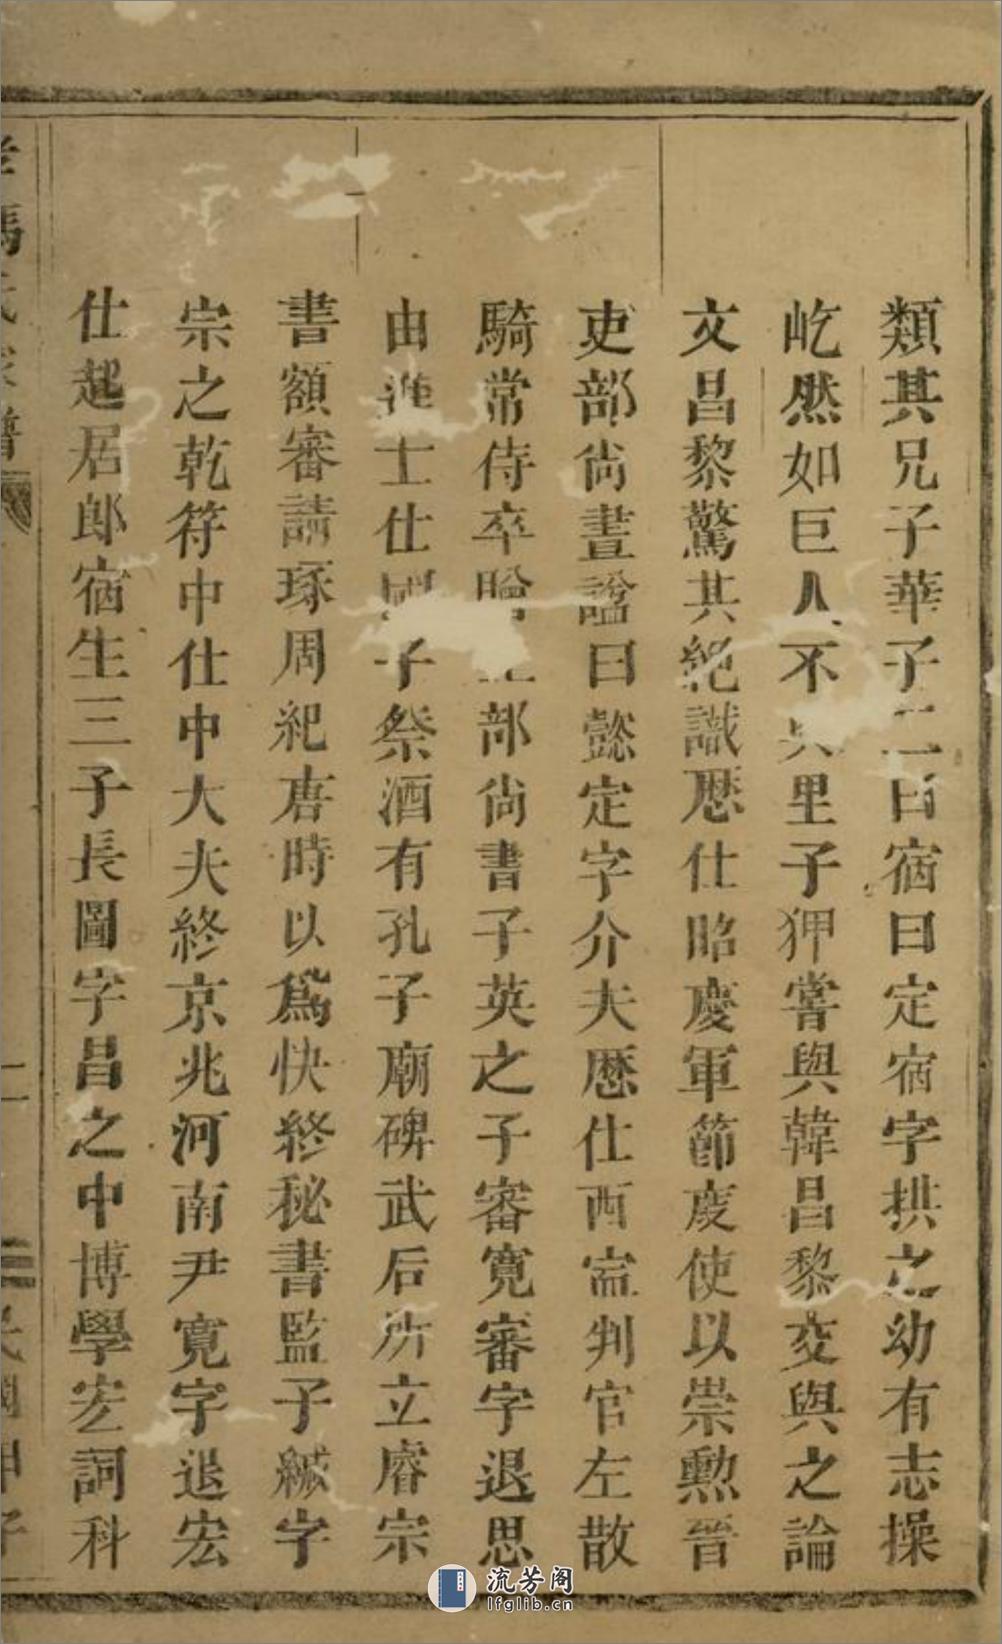 類其兄子華子二曰宿曰定宿字拱之幼有志操
屹然如巨人不與里子狎嘗與韓昌黎交與之論
文昌黎驚其絕識歷仕昭慶軍節度使以崇勲晉
吏部尚晝諡曰懿定字介夫歷仕西𡩋判官左散
騎常侍卒贈工部尚書子英之子審寬審字退思
由進士仕國子祭酒有孔子廟碑武后所立睿宗
書額審請琢周紀唐時以爲快終秘書監子緘字
宗之乾符中仕中大夫終京兆河南尹寬字退宏
仕起居郎宿生三子長圖字昌之中博學宏詞科
馮氏家譜
二
民國甲子
流芳阁
lfglib.cn